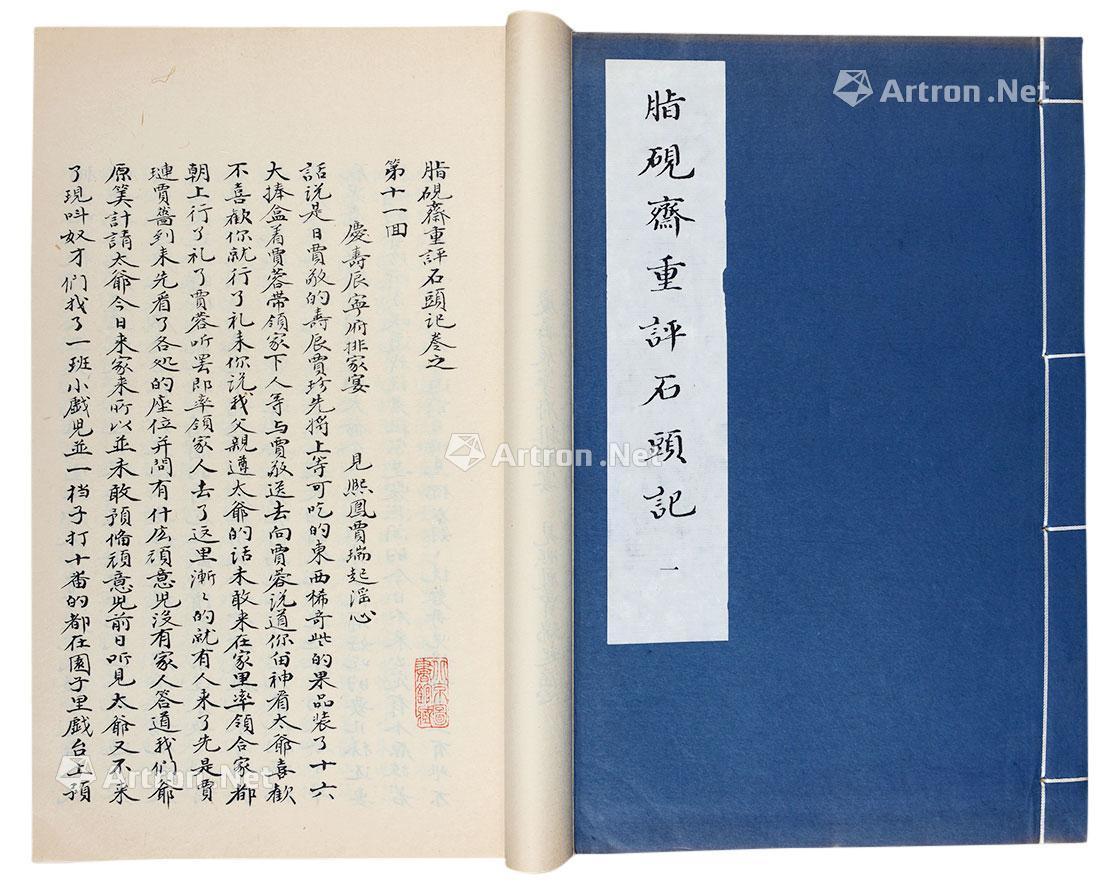 脂硯齋重評石頭記
一
脂硯齋重評石頭記卷之
第十一回
慶壽辰寧府排家宴 見熙鳳賈瑞起淫心
話說是日賈敬的壽辰賈珍先將上等可吃的東西稀奇些的果品裝了十六
大捧盒着賈蓉帶領家下人等与賈敬送去向賈蓉說道你畱神看太爺喜歡
不喜歡你就行了礼来你說我父親遵太爺的話未敢来在家里率領合家都
朝上行了礼了賈蓉听罢即率領家人去了这里漸〻的就有人来了先是賈
璉賈薔到来先看了各処的座位并問有什庅頑意兒没有家人答道我们爺
原筭計請太爺今日来家来所以並未敢預俻頑意兒前日听見太爺又不来
了現呌奴才們找了一班小戲兒並一档子打十番的都在園子里戲台上預
Artron.Net
Artron.Net
Artron.Net
Artron.Net